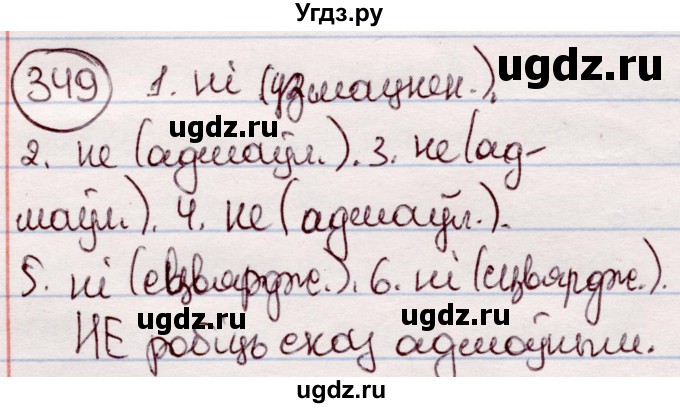 Угдз.ру
349 1. ні (узмацнен.).
2. не (адмаўл.). 3. не (ад-
маўл.). 4. не (адмаўл.).
5. ні (сцвярдж.). 6. ні (сцвярдж.).
НЕ робіць сказ адмоўным.
ugdz.ru
ugdz.ru
ugdz.ru
ugdz.ru
ugdz.ru
ugdz.ru
ugdz.ru